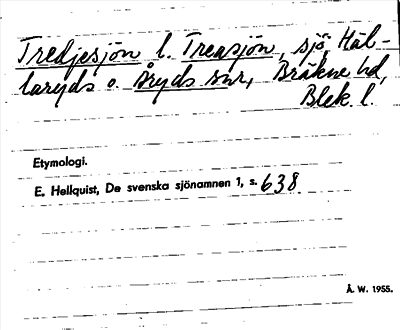 Tredjesjön l. Treasjön, sjö, Häl-
laryds o. Åryds snr, Bräkne hd,
Blek. l.
Etymologi.
E. Hellquist, De svenska sjönamnen 1, s. 638
Å. W. 1955.